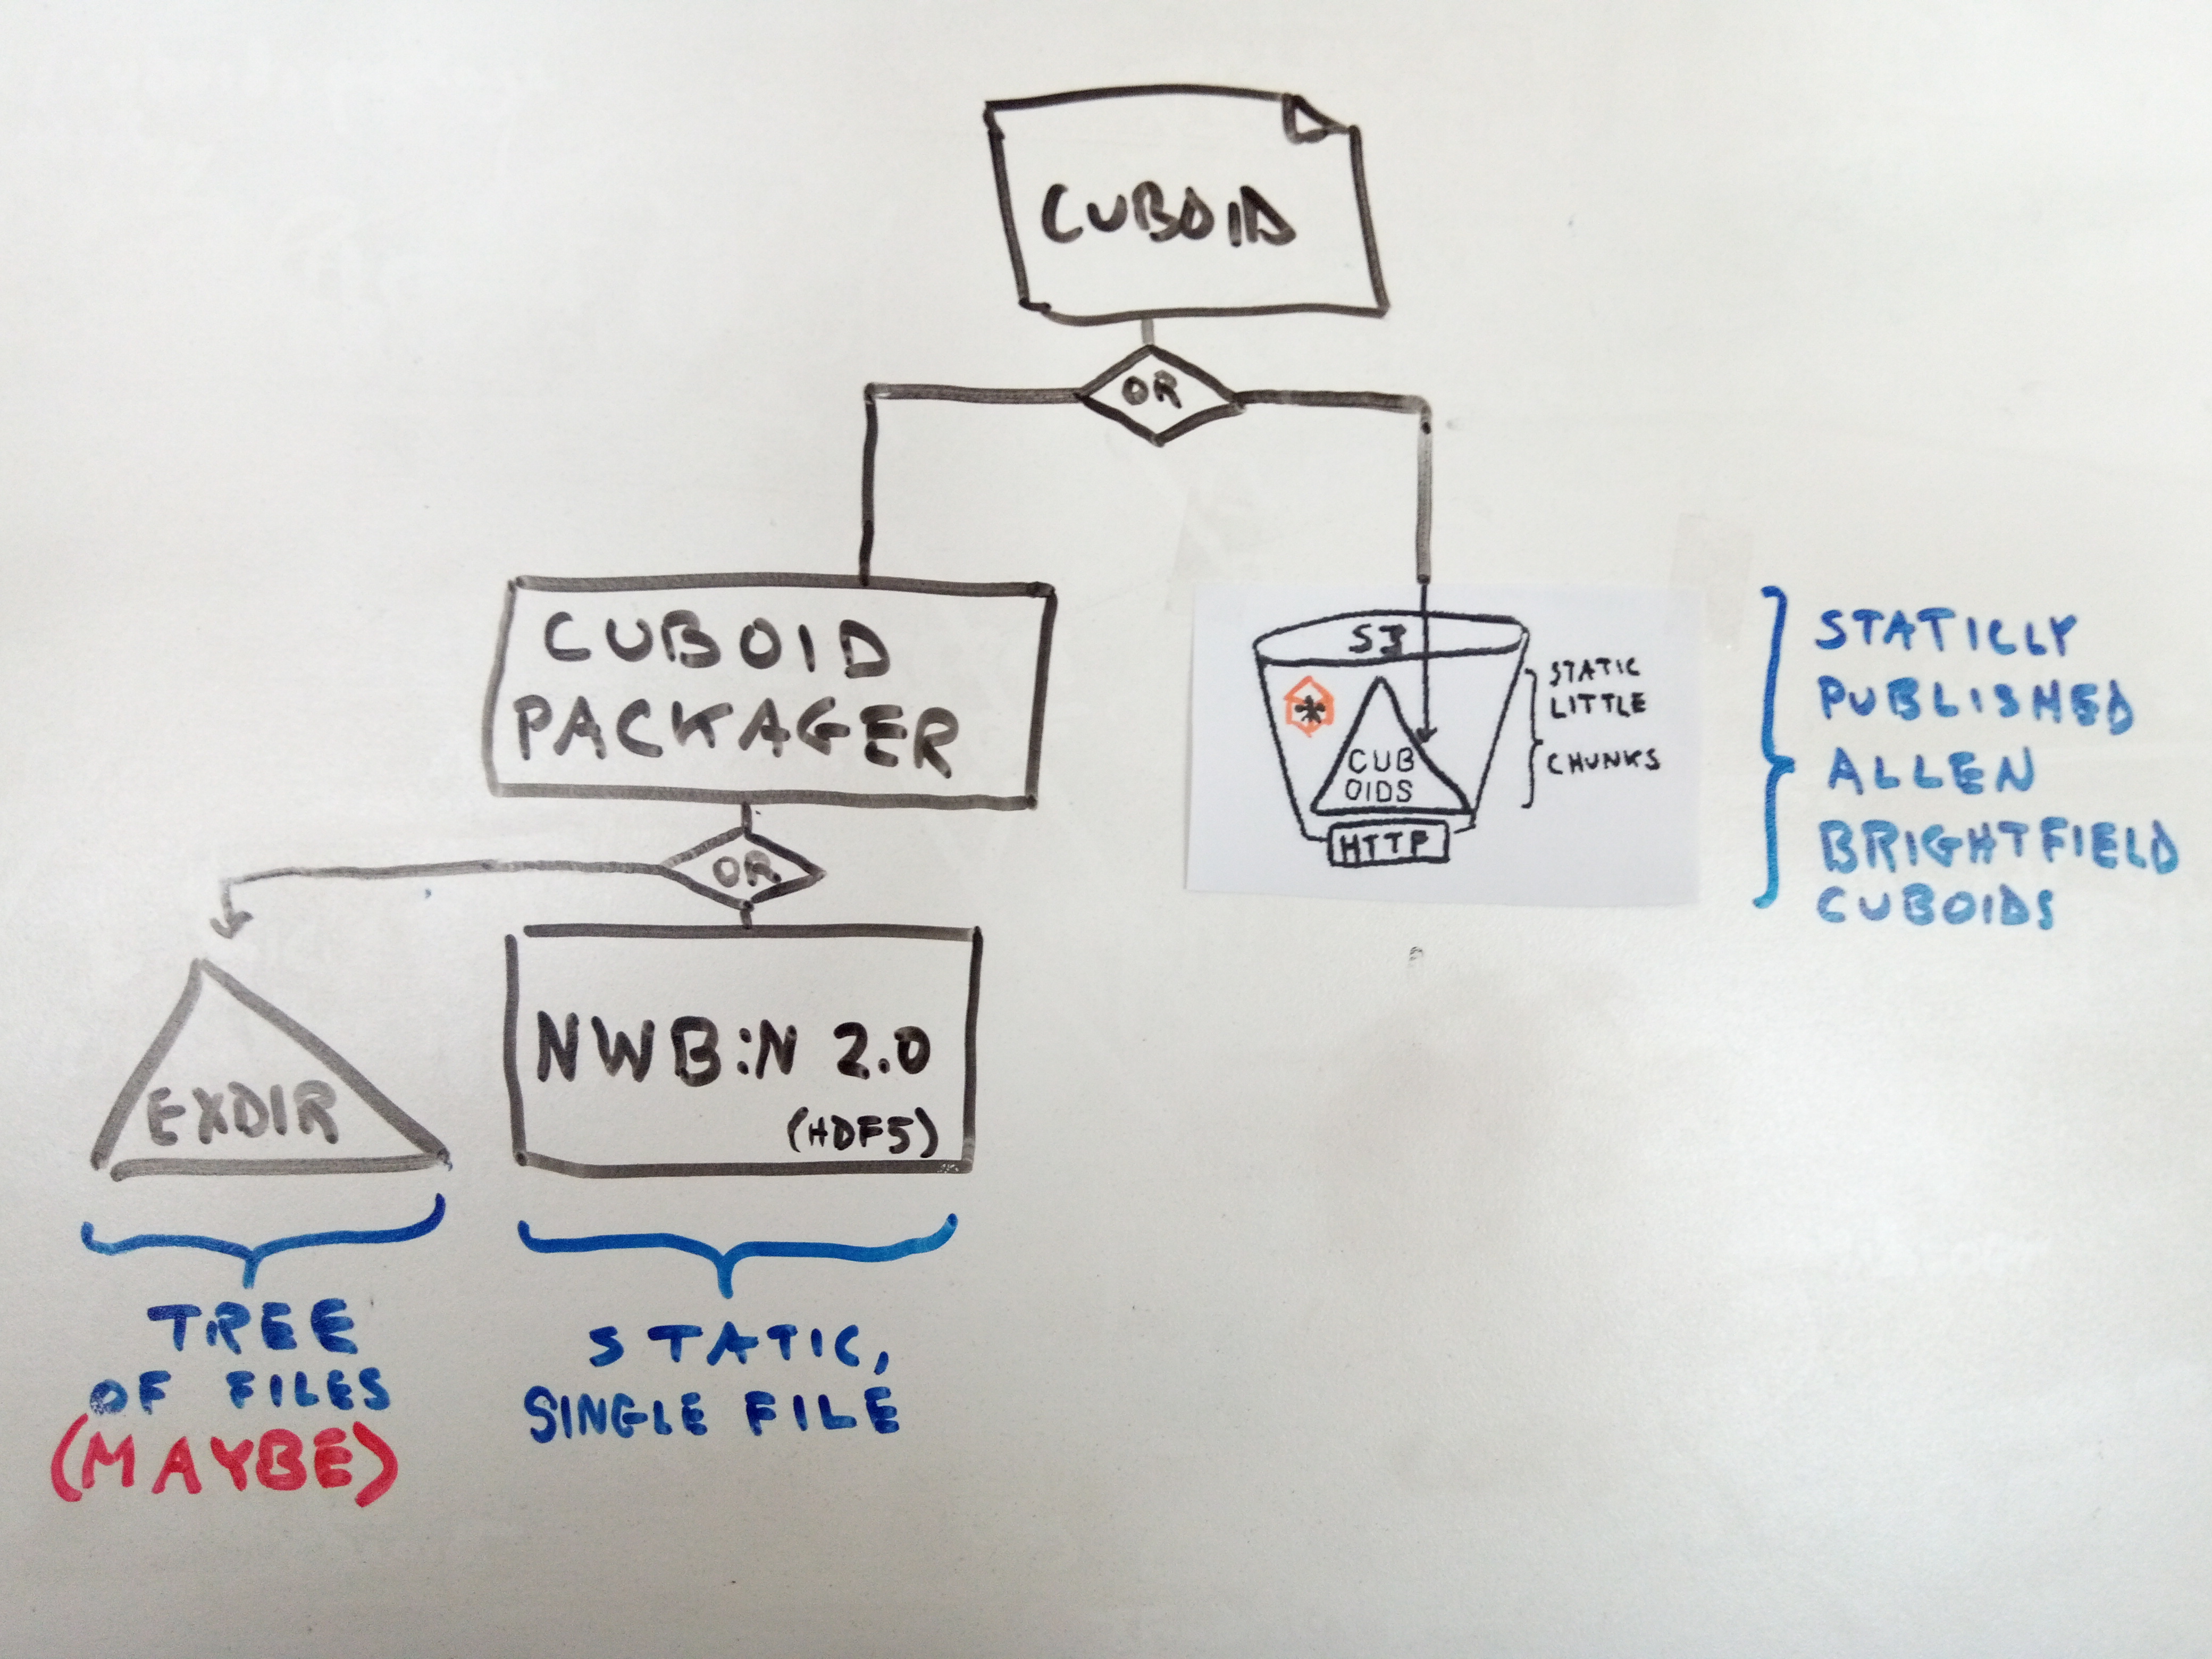 CUBOID
OR
CUBOID
PACKAGER
S3
*
CUB
OIDS
HTTP
STATIC
LITTLE
CHUNKS
STATICLY
PUBLISHED
ALLEN
BRIGHTFIELD
CUBOIDS
OR
EXDIR
NWB:N 2.0
(HDF5)
TREE
OF FILES
(MAYBE)
STATIC,
SINGLE FILE